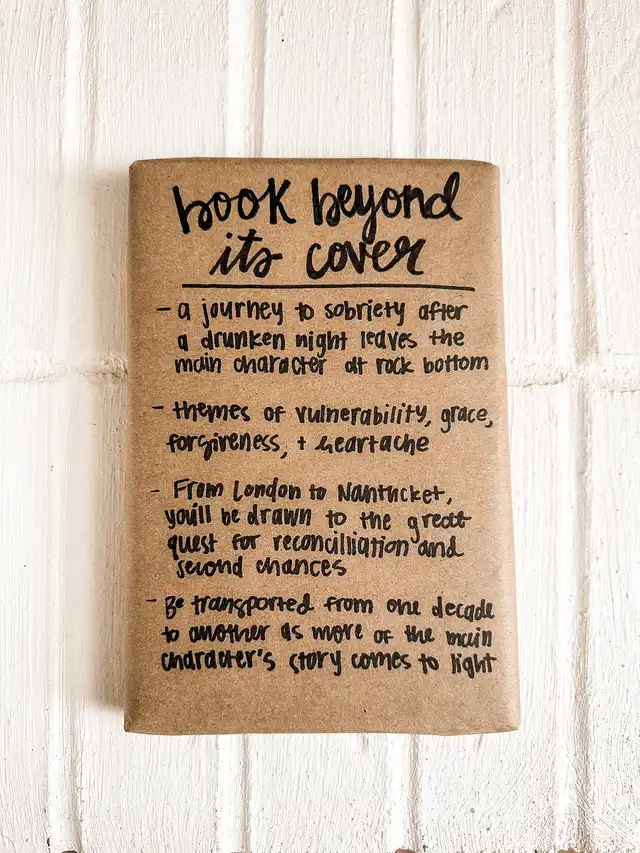 book beyond
its cover
- a journey to sobriety after
a drunken night leaves the
main character at rock bottom
- themes of vulnerability, grace,
forgiveness, + heartache
- From London to Nantucket,
you'll be drawn to the great
quest for reconcilliation and
second chances
- Be transported from one decade
to another as more of the main
character's story comes to light